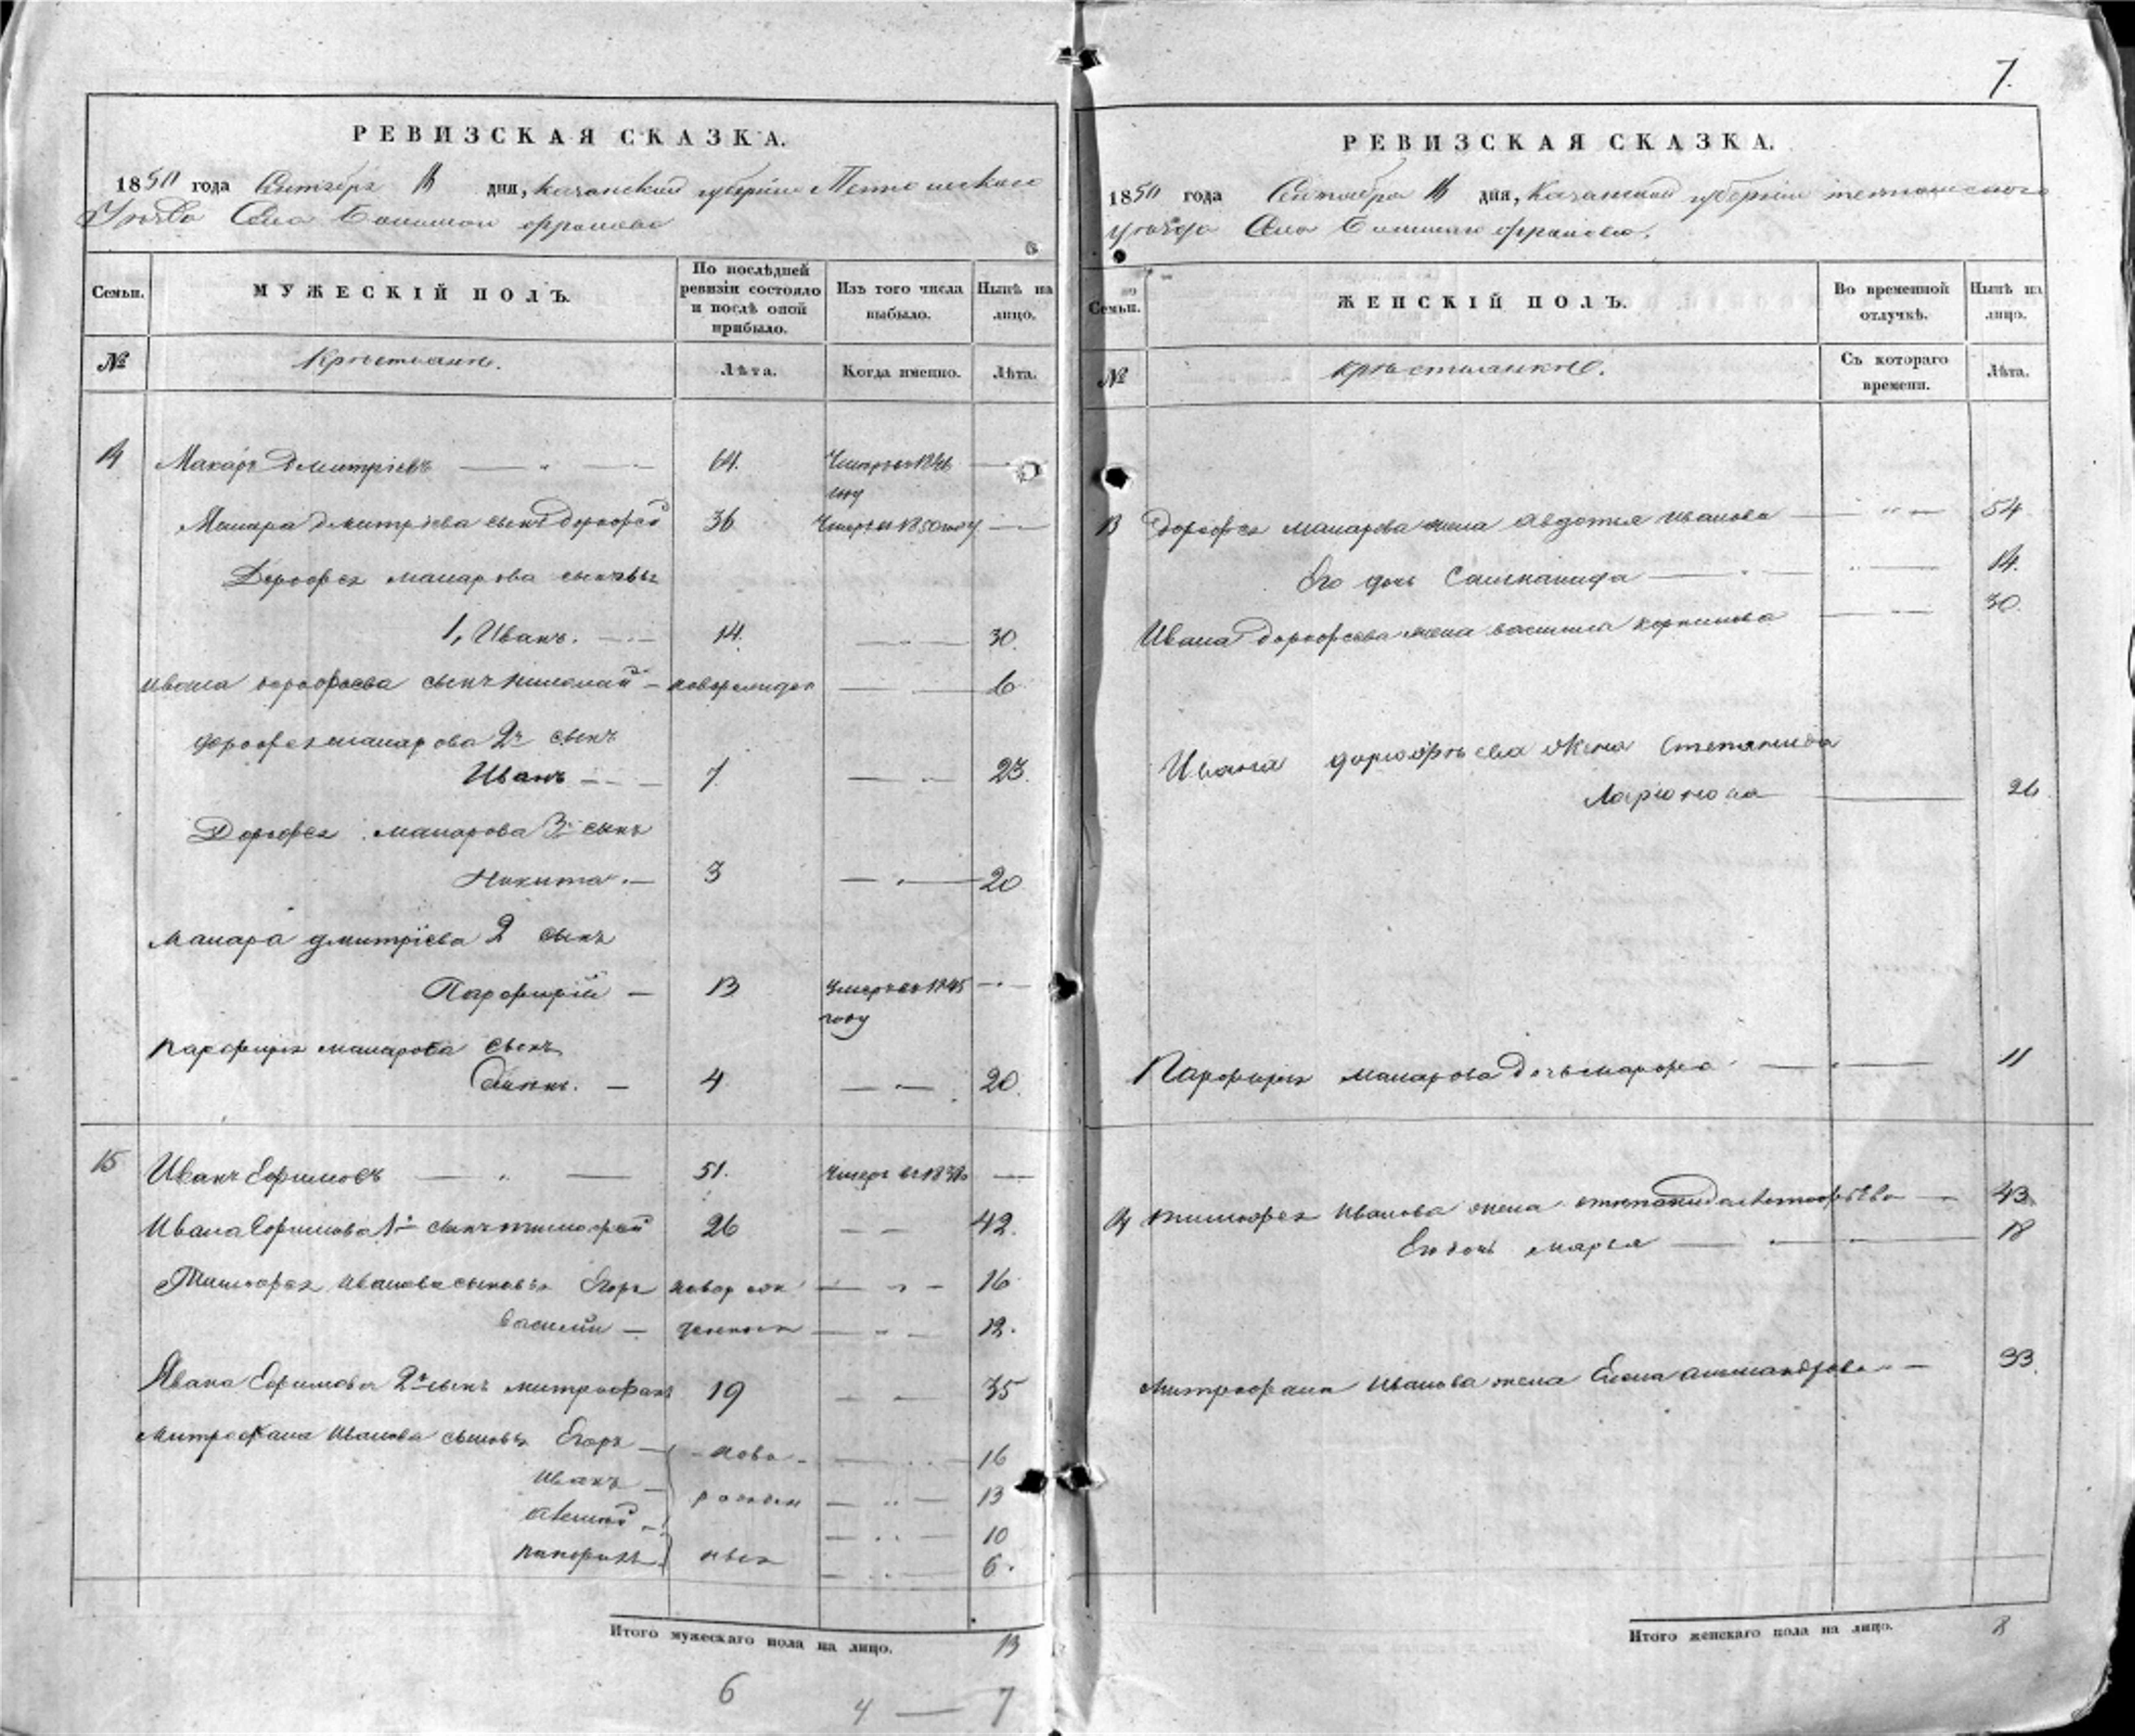 7.
РЕВИЗСКАЯ СКАЗКА.
1850 года Сентября дня, Казанской губерніи
Уѣзда Села
Семьи.
МУЖЕСКІЙ ПОЛЪ.
По послѣдней ревизіи состояло и послѣ оной прибыло.
Изъ того числа выбыло.
Нынѣ на лицо.
№
Крестьяне.
Лѣта.
Когда именно.
Лѣта.
14 Макаръ Дмитріевъ — " — 64. Умеръ въ 1846 —
году
Макара Дмитріева сынъ Дорофей 36 Умеръ въ 1850 году —
Дорофея макарова сыновья
1, Иванъ. — 14. — 30.
Ивана дорофѣева сынъ николай — новорожден — 6
дорофея макарова 2й сынъ
Иванъ — 7. — 23.
Дорофея макарова 3й сынъ
Никита. — 3 — 20
макара дмитріева 2 сынъ
Парфирій — 13 умеръ въ 1845 —
году
парфирія макарова сынъ
— 4 — 20.
15 Иванъ Ефимовъ — " — 51. Умеръ въ —
Ивана Ефимова 1й сынъ тимофей 26 — 42.
Тимофея Иванова сыновья Егоръ новорож — 16
василій — денныя — 12.
Ивана Ефимова 2й сынъ митрофанъ 19 — 35
митрофана Иванова сыновья Егоръ — ново — 16
Иванъ — рожден — 13
— 10
ныя — 6.
Итого мужескаго пола на лицо. 13
6 4 — 7
РЕВИЗСКАЯ СКАЗКА.
1850 года Сентября дня, Казанской губерніи
уѣзда Села
Семьи.
ЖЕНСКІЙ ПОЛЪ.
Во временной отлучкѣ.
Нынѣ на лицо.
№
крестьянкѣ.
Съ котораго времени.
Лѣта.
Дорофея макарова жена Авдотья иванова — 54
Его дочь — 14.
Ивана дорофеева жена — 30.
Ивана дорофѣева жена Степанида
Ларіонова — 26
Парфирія макарова дочь марфа — 11
тимофея иванова жена степанида — 43
Его дочь марья — 18
митрофана Иванова жена Елена — 33
Итого женскаго пола на лицо. 8